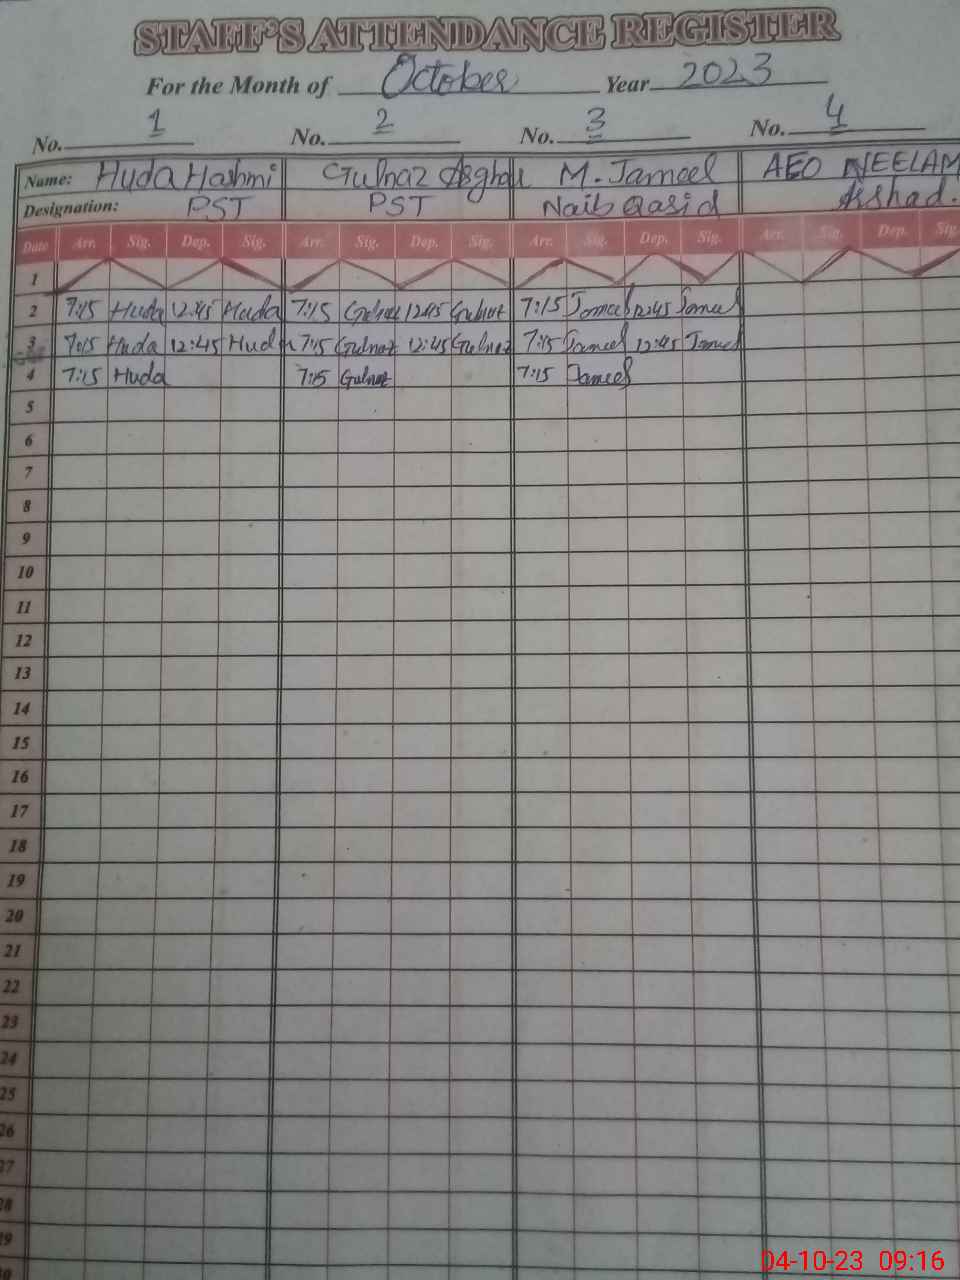 STAFF'S ATTENDANCE REGISTER
For the Month of October Year 2023
No. 1 No. 2 No. 3 No. 4
Name: Huda Hashmi Gulnaz Asghar M. Jameel AEO NEELAM
Designation: PST PST Naib Qasid Arshad.
Date Arr. Sig. Dep. Sig. Arr. Sig. Dep. Sig. Arr. Sig. Dep. Sig. Arr. Sig. Dep. Sig.
1
2 7:15 Huda 12:45 Huda 7:15 Gulnaz 12:45 Gulnaz 7:15 Jameel 12:45 Jameel
3 7:15 Huda 12:45 Huda 7:15 Gulnaz 12:45 Gulnaz 7:15 Jameel 12:45 Jameel
4 7:15 Huda 7:15 Gulnaz 7:15 Jameel
5
6
7
8
9
10
11
12
13
14
15
16
17
18
19
20
21
22
23
24
25
26
27
28
29
30
04-10-23 09:16